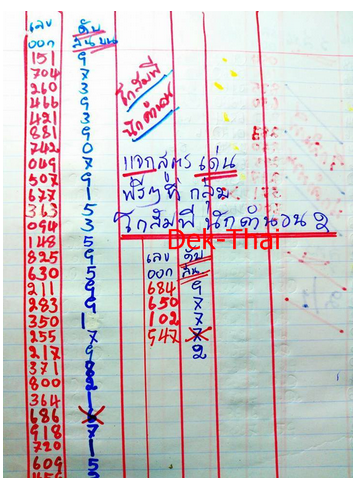 เลข ดับ
ออก สิบบน
151 9
704 7
260 3
466 9
421 3
881 9
742 0
049 7
507 9
677 1
363 5
094 3
148 5
825 9
630 5
211 9
283 9
350 1
255 7
217 9
371 8
800 2
364 1
686
918 7
720 1
609 5
โกสัมพี
นักคำนวน
แจกสูตร เด่น
ฟรีๆที่ กลุ่ม
โกสัมพี นักคำนวน 2
Dek-Thai
เลข ดับ
ออก สิบ
684 9
650 7
102 7
947 7
2